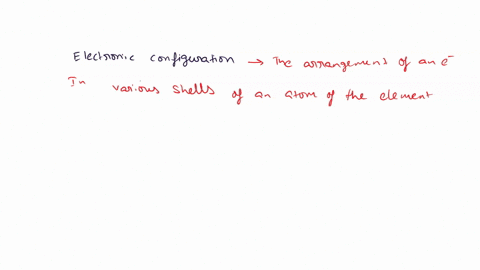 Electronic configuration → The arrangement of an e⁻
In various shells of an atom of the element